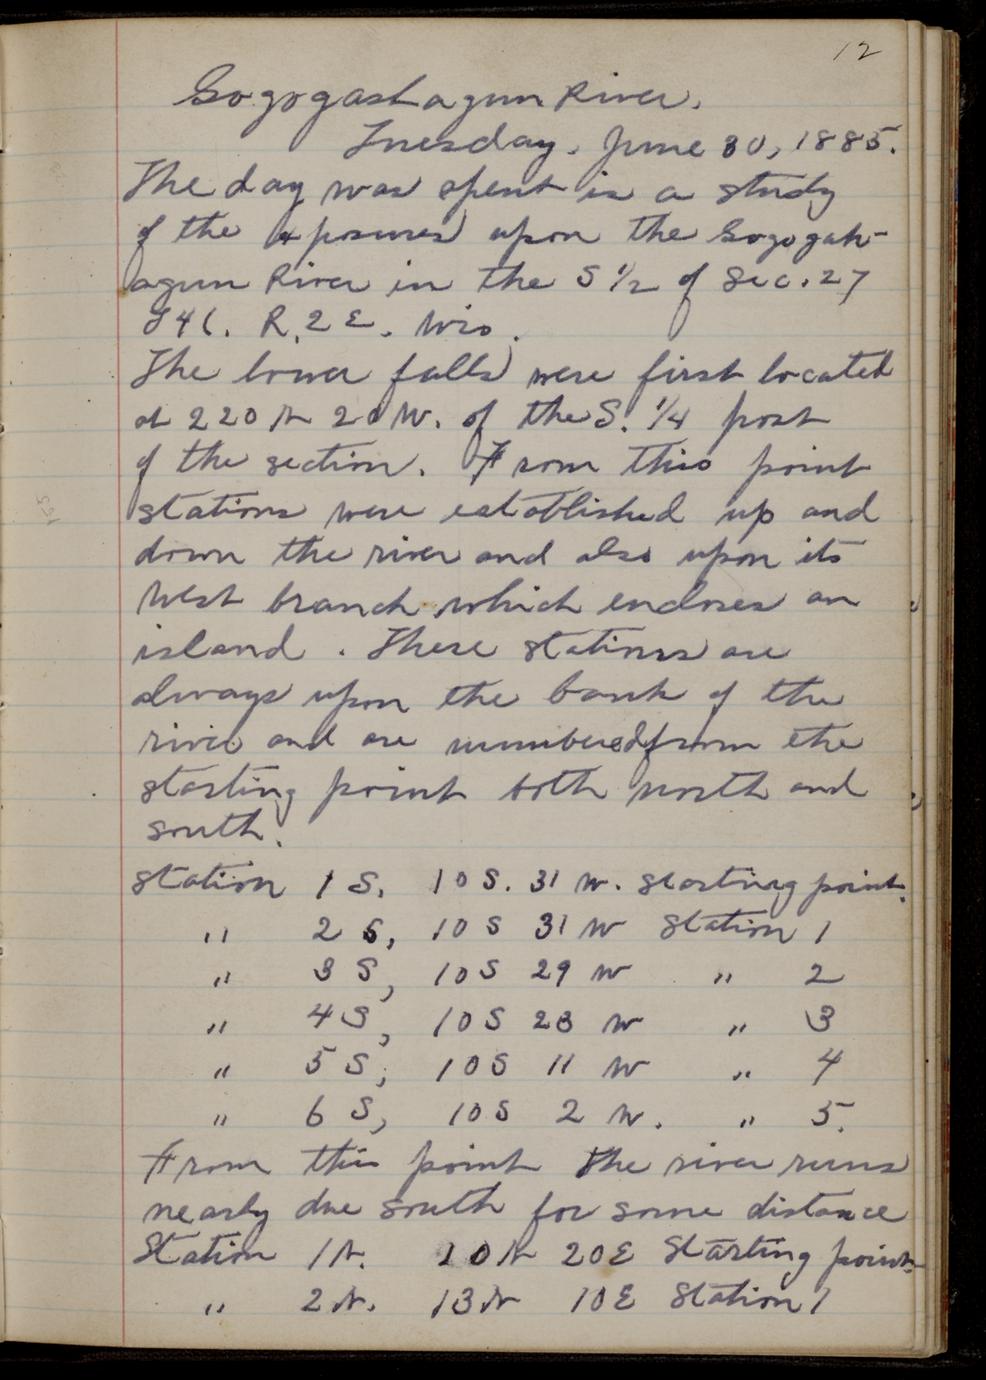 12
Gogogashagun River.
Tuesday. June 30, 1885.
The day was spent in a study
of the exposures upon the Gogogah-
agun River in the S 1/2 of Sec. 27
T46. R. 2 E. Wis.
The lower falls were first located
at 220 N 20 W. of the S. 1/4 post
of the section. From this point
stations were established up and
down the river and also upon its
West branch which encloses an
island. These stations are
always upon the bank of the
river and are numbered from the
starting point both north and
south.
Station 1 S. 10 S. 31 W. starting point.
" 2 S, 10 S 31 W Station 1
" 3 S, 10 S 29 W " 2
" 4 S, 10 S 23 W " 3
" 5 S, 10 S 11 W " 4
" 6 S, 10 S 2 W. " 5.
From this point the river runs
nearly due south for some distance
Station 1 N. 10 N 20 E Starting point
" 2 N. 13 N 10 E Station 1